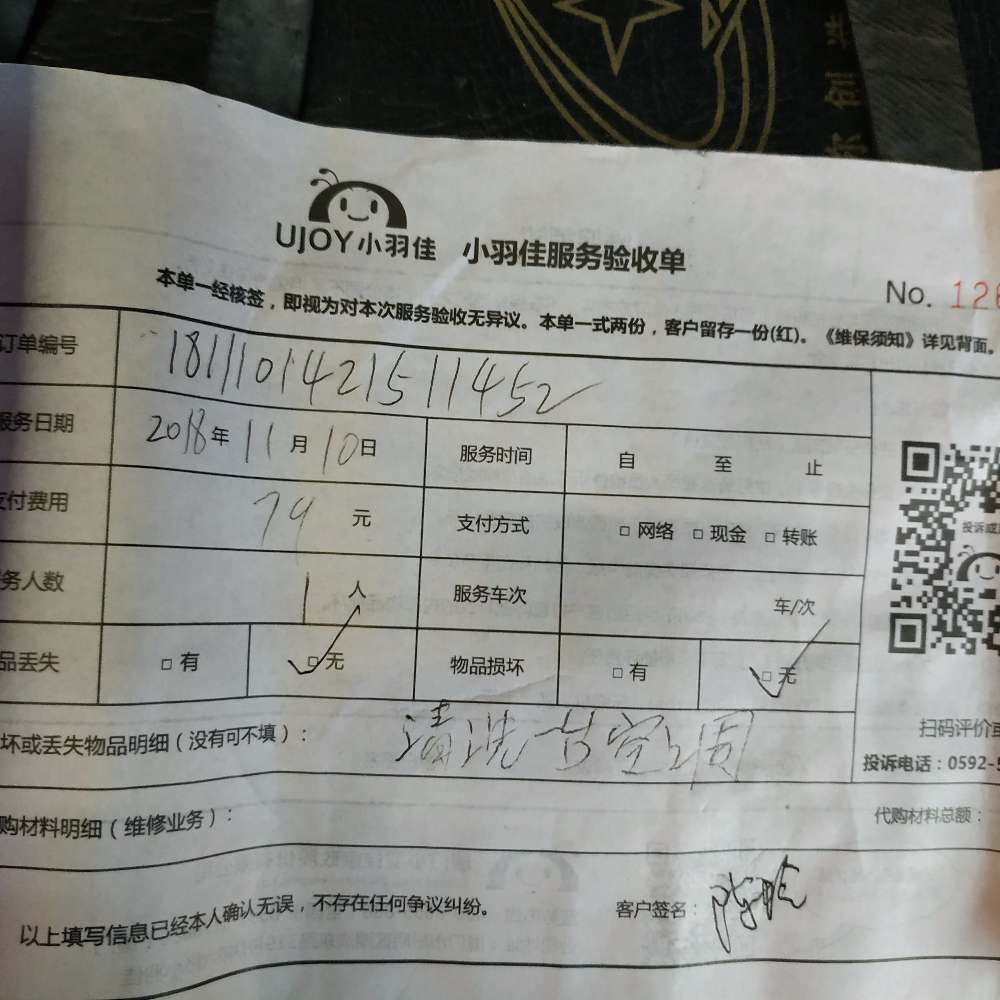 UJOY小羽佳 小羽佳服务验收单
No. 126
本单一经核签，即视为对本次服务验收无异议。本单一式两份，客户留存一份(红)。《维保须知》详见背面。
订单编号 1811101421511452
服务日期 2018年11月10日 服务时间 自 至 止
支付费用 79元 支付方式 □网络 □现金 □转账
务人数 1人 服务车次 车/次
品丢失 □有 □无 物品损坏 □有 □无
坏或丢失物品明细（没有可不填）： 清洗一台空调
扫码评价或
投诉电话：0592-5
购材料明细（维修业务）： 代购材料总额：
以上填写信息已经本人确认无误，不存在任何争议纠纷。 客户签名：